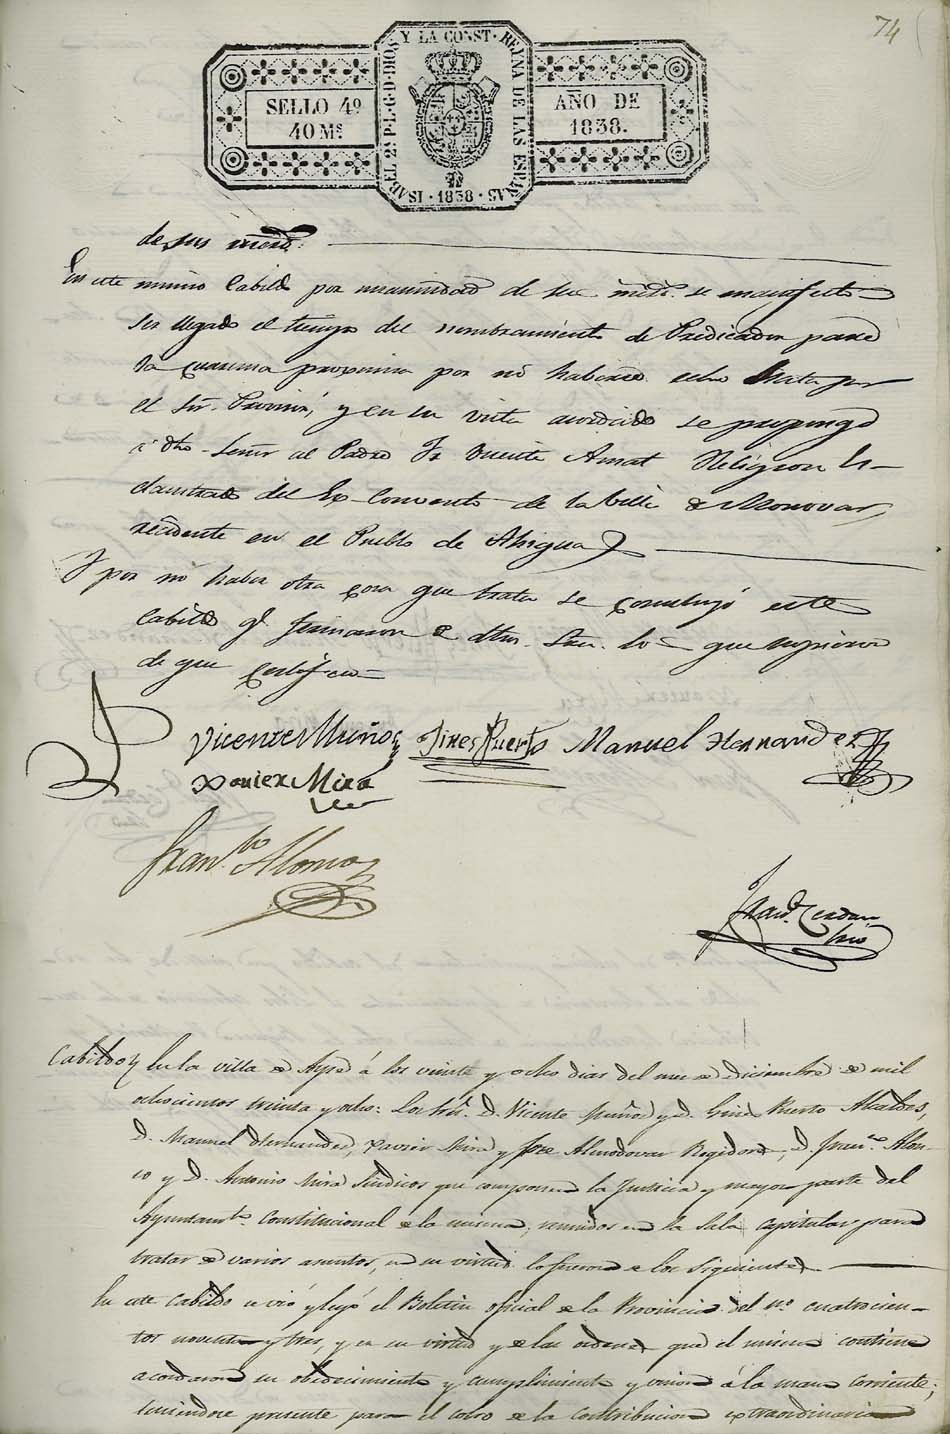 74
ISABEL 2ª P.L.G.D.DIOS Y LA CONST. REYNA DE LAS ESPAÑAS
SELLO 4º
40 Ms
AÑO DE
1838.
· 1838 ·
de sus mercd.
En este mismo Cabildo por unanimidad de sus mrds. se manifesto
ser llegado el tiempo del nombramiento de Predicador para
la cuaresma proxima por no haberse echo hasta
el Sr. y en su vista acordado se proponga
a dho. Señor al Padre Fr. Vicente Amat Religioso Es-
claustrado del Ex-Convento de la Villa de Monovar,
recidente en el Pueblo de
Y por no haber otra cosa que tratar se concluyó este
Cabildo qe. firmaron de dhos. Sres. los que supieron
de que certifico
Vicente Muños Jines Puerto Manuel Hernandez
Xavier Mira
Franco. Alonso
Franco. Cerdan
Srio
Cabildo En la villa de Aspe á los veinte y ocho dias del mes de Diciembre de mil
ochocientos treinta y ocho: Los Sres. D. Vicente Muñoz y D. Gines Puerto Alcaldes,
D. Manuel Hernandez, Xavier Mira y Jose Almodovar Regidores, D. Franco. Alon-
so y D. Antonio Mira Sindicos que componen la Justicia y mayor parte del
Ayuntamto. Constitucional de la misma, reunidos en la Sala Capitular para
tratar de varios asuntos, en su virtud lo fueron de los Siguientes
En este Cabildo se vió y leyó el Boletin oficial de la Provincia del no. cuatrocien-
tos noventa y tres, y en su virtud y de las ordenes que el mismo contiene
acordaron su obedecimiento y cumplimiento y union á la mano corriente;
teniendose presente para el cobro de la contribucion extraordinaria